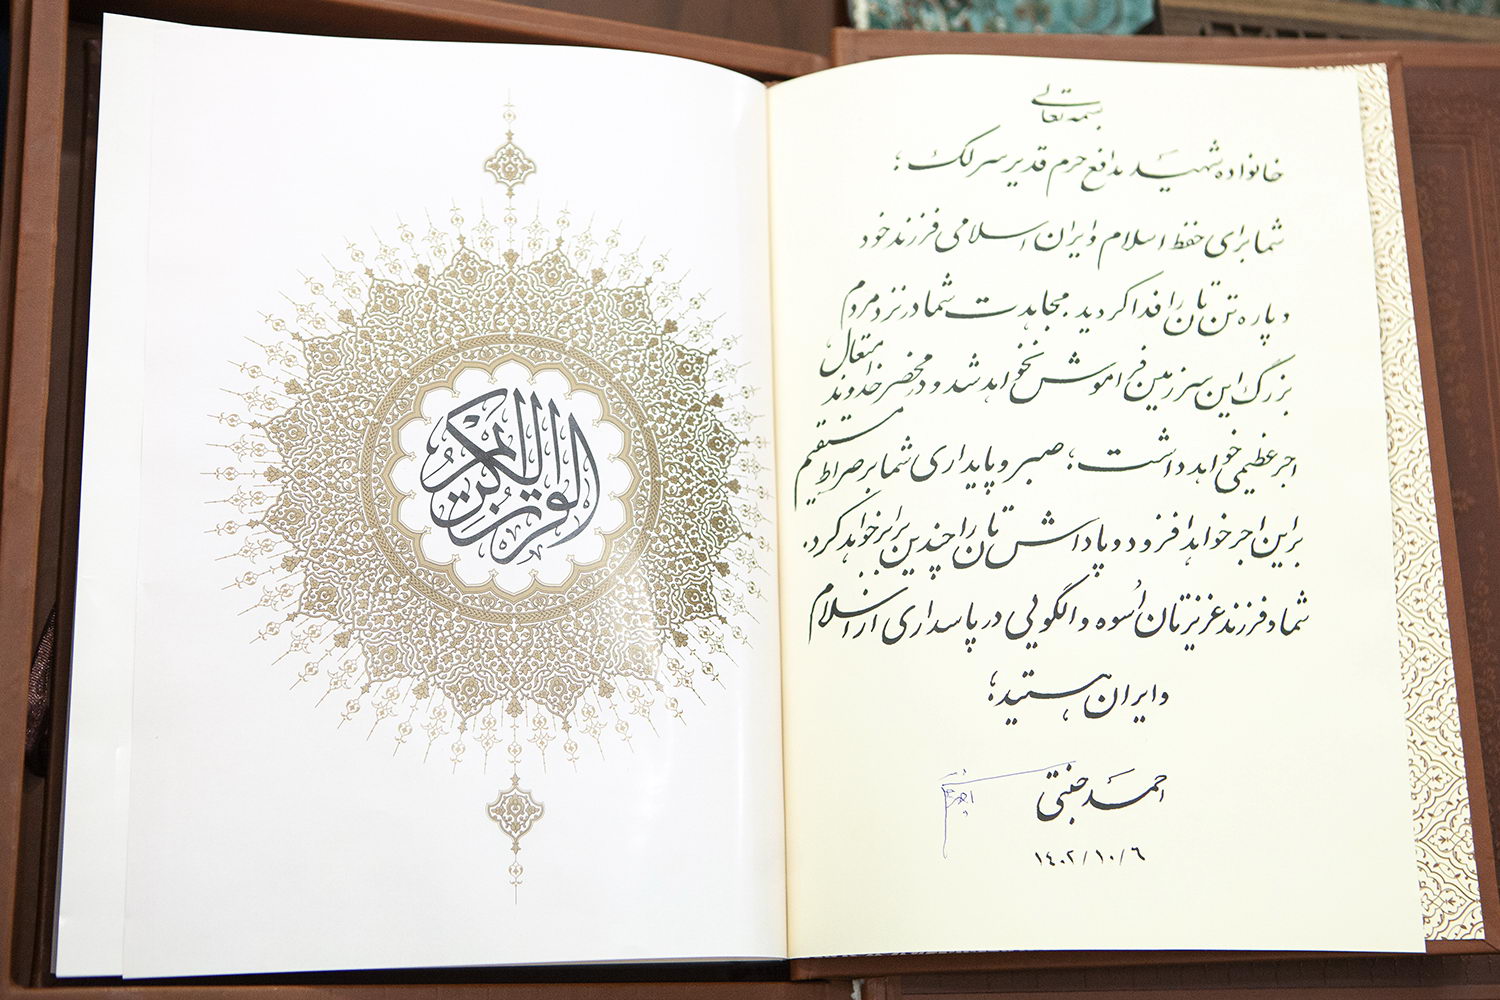 القرآن الکریم
بسمه تعالی
خانواده شهید مدافع حرم قدیر سرلک؛
شما برای حفظ اسلام و ایران اسلامی فرزند خود
و پاره تن تان را فدا کردید. مجاهدت شما در نزد مردم
بزرگ این سرزمین فراموش نخواهد شد و در محضر خداوند متعال
اجر عظیمی خواهد داشت؛ صبر و پایداری شما بر صراط مستقیم
بر این اجر خواهد افزود و پاداش تان را چندین برابر خواهد کرد.
شما و فرزند عزیزتان اُسوه و الگویی در پاسداری از اسلام
و ایران هستید؛
احمد جنتی
۱۴۰۲/۱۰/۶